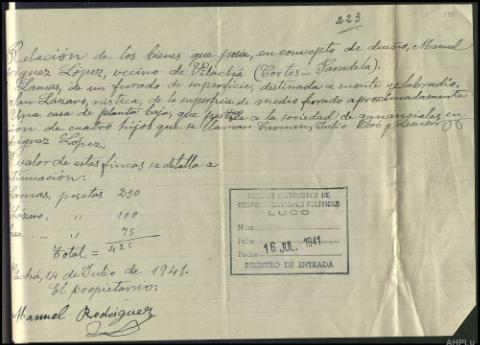 223
Relación de los bienes que poseía, en concepto de dueño, Manuel
riguez López, vecino de Vilachá (Cortes - Paradela).
Lamas, de un ferrado de superficie, destinada a monte y labradío.
San Lázaro, rústica, de la superficie de medio ferrado aproximadamente
Una casa de planta baja, que pertece a la sociedad de gananciales en
ión de cuatro hijos que se llaman Carmen, Julio José y
riguez López.
valor de estas fincas se detalla a
tinuación:
Lamas, pesetas 250
Lázaro, " 100
" 75
Total = 425
lachá, 14 de Julio de 1941.
El propietario:
Manuel Rodriguez
RESPONSABILIDADES POLÍTICAS
LUGO
Núm.
Fecha 16 JUL. 1941
REGISTRO DE ENTRADA
AHPLu